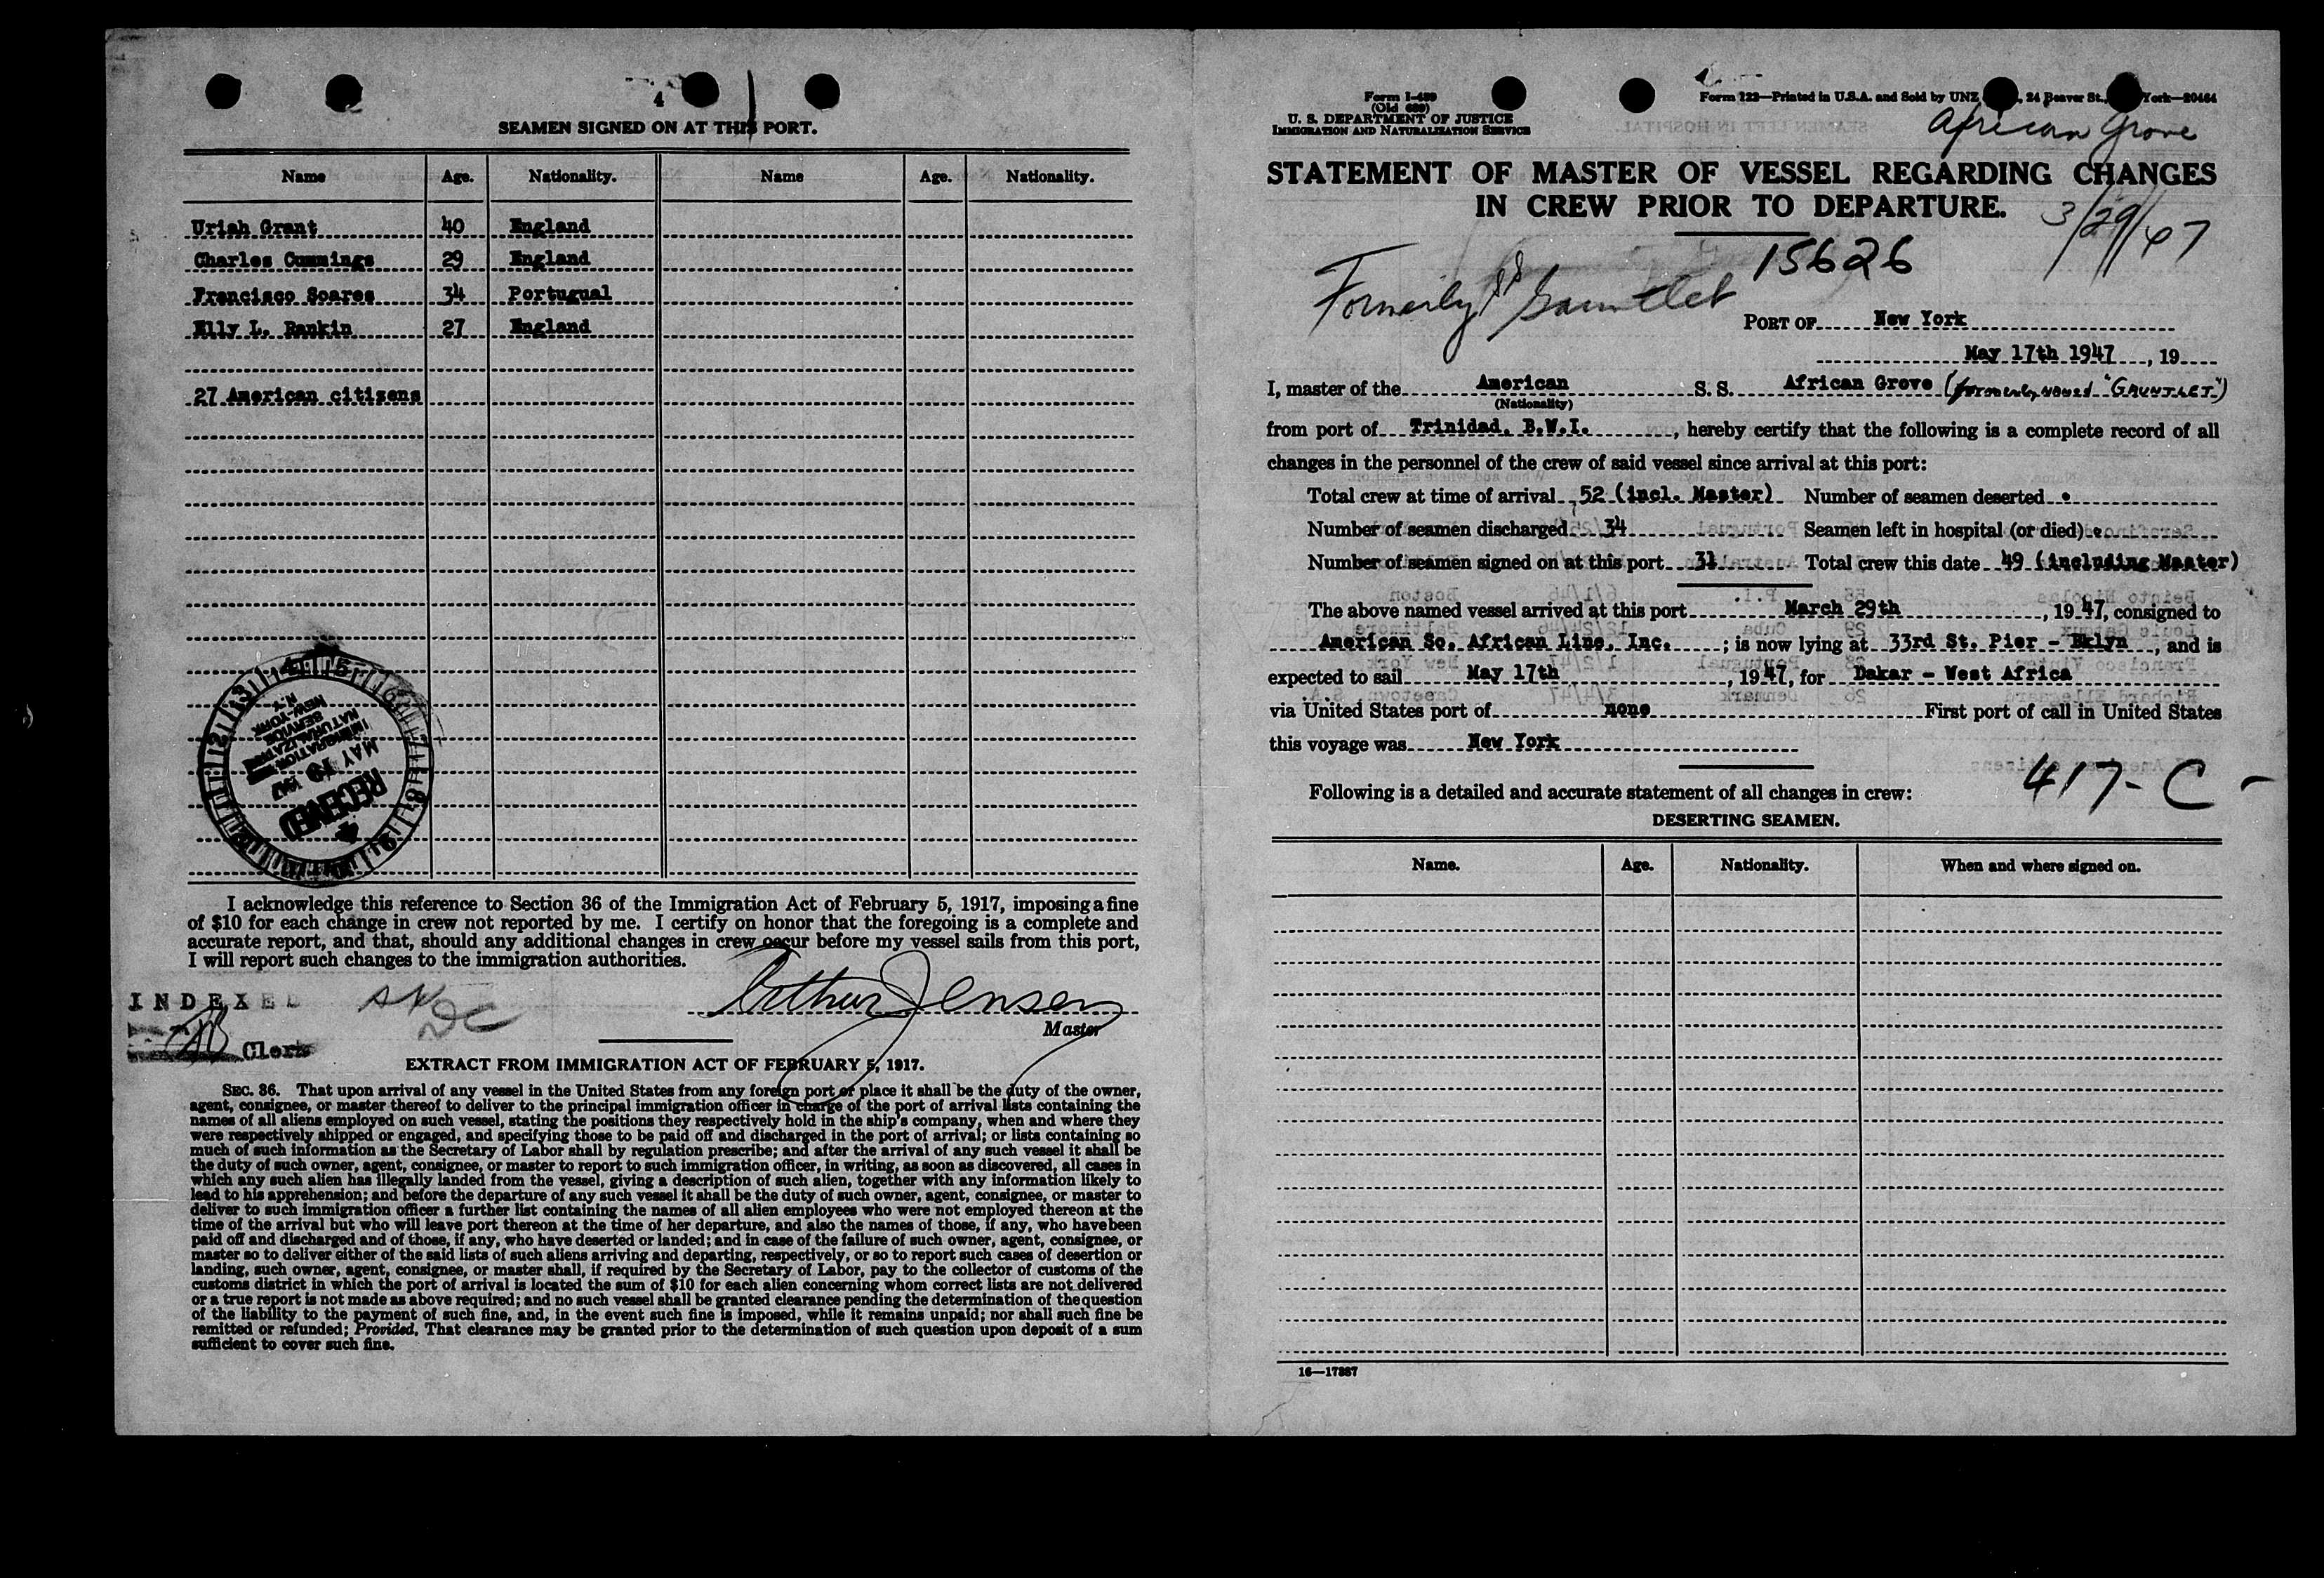 4
SEAMEN SIGNED ON AT THIS PORT.
Name Age. Nationality. Name Age. Nationality.
Uriah Grant 40 England
Charles Cummings 29 England
Francisco Soares 34 Portugual
Elly L. Rankin 27 England
27 American citizens
RECEIVED
MAY 19 1947
IMMIGRATION
NATURALIZATION
SERVICE
NEW YORK
N.Y.
I acknowledge this reference to Section 36 of the Immigration Act of February 5, 1917, imposing a fine
of $10 for each change in crew not reported by me. I certify on honor that the foregoing is a complete and
accurate report, and that, should any additional changes in crew occur before my vessel sails from this port,
I will report such changes to the immigration authorities.
INDEXED
Clerk
Arthur Jensen
Master
EXTRACT FROM IMMIGRATION ACT OF FEBRUARY 5, 1917.
SEC. 36. That upon arrival of any vessel in the United States from any foreign port or place it shall be the duty of the owner,
agent, consignee, or master thereof to deliver to the principal immigration officer in charge of the port of arrival lists containing the
names of all aliens employed on such vessel, stating the positions they respectively hold in the ship's company, when and where they
were respectively shipped or engaged, and specifying those to be paid off and discharged in the port of arrival; or lists containing so
much of such information as the Secretary of Labor shall by regulation prescribe; and after the arrival of any such vessel it shall be
the duty of such owner, agent, consignee, or master to report to such immigration officer, in writing, as soon as discovered, all cases in
which any such alien has illegally landed from the vessel, giving a description of such alien, together with any information likely to
lead to his apprehension; and before the departure of any such vessel it shall be the duty of such owner, agent, consignee, or master to
deliver to such immigration officer a further list containing the names of all alien employees who were not employed thereon at the
time of the arrival but who will leave port thereon at the time of her departure, and also the names of those, if any, who have been
paid off and discharged and of those, if any, who have deserted or landed; and in case of the failure of such owner, agent, consignee, or
master so to deliver either of the said lists of such aliens arriving and departing, respectively, or so to report such cases of desertion or
landing, such owner, agent, consignee, or master shall, if required by the Secretary of Labor, pay to the collector of customs of the
customs district in which the port of arrival is located the sum of $10 for each alien concerning whom correct lists are not delivered
or a true report is not made as above required; and no such vessel shall be granted clearance pending the determination of the question
of the liability to the payment of such fine, and, in the event such fine is imposed, while it remains unpaid; nor shall such fine be
remitted or refunded; Provided, That clearance may be granted prior to the determination of such question upon deposit of a sum
sufficient to cover such fine.
Form I-489
(Old 689)
U. S. DEPARTMENT OF JUSTICE
IMMIGRATION AND NATURALIZATION SERVICE
Form 122—Printed in U.S.A. and Sold by UNZ , 24 Beaver St., York—20464
African Grove
STATEMENT OF MASTER OF VESSEL REGARDING CHANGES
IN CREW PRIOR TO DEPARTURE.
3/29/47
15626
Formerly SS Gauntlet
PORT OF New York
May 17th 1947, 19
I, master of the American S. S. African Grove (formerly named "GAUNTLET")
(Nationality)
from port of Trinidad, B.W.I. , hereby certify that the following is a complete record of all
changes in the personnel of the crew of said vessel since arrival at this port:
Total crew at time of arrival 52 (incl. Master) Number of seamen deserted
Number of seamen discharged 34 Seamen left in hospital (or died)
Number of seamen signed on at this port 31 Total crew this date 49 (including Master)
The above named vessel arrived at this port March 29th , 1947, consigned to
American So. African Line, Inc. ; is now lying at 33rd St. Pier - Bklyn , and is
expected to sail May 17th , 1947, for Dakar - West Africa
via United States port of none First port of call in United States
this voyage was New York
417-C-
Following is a detailed and accurate statement of all changes in crew:
DESERTING SEAMEN.
Name. Age. Nationality. When and where signed on.
16—17387